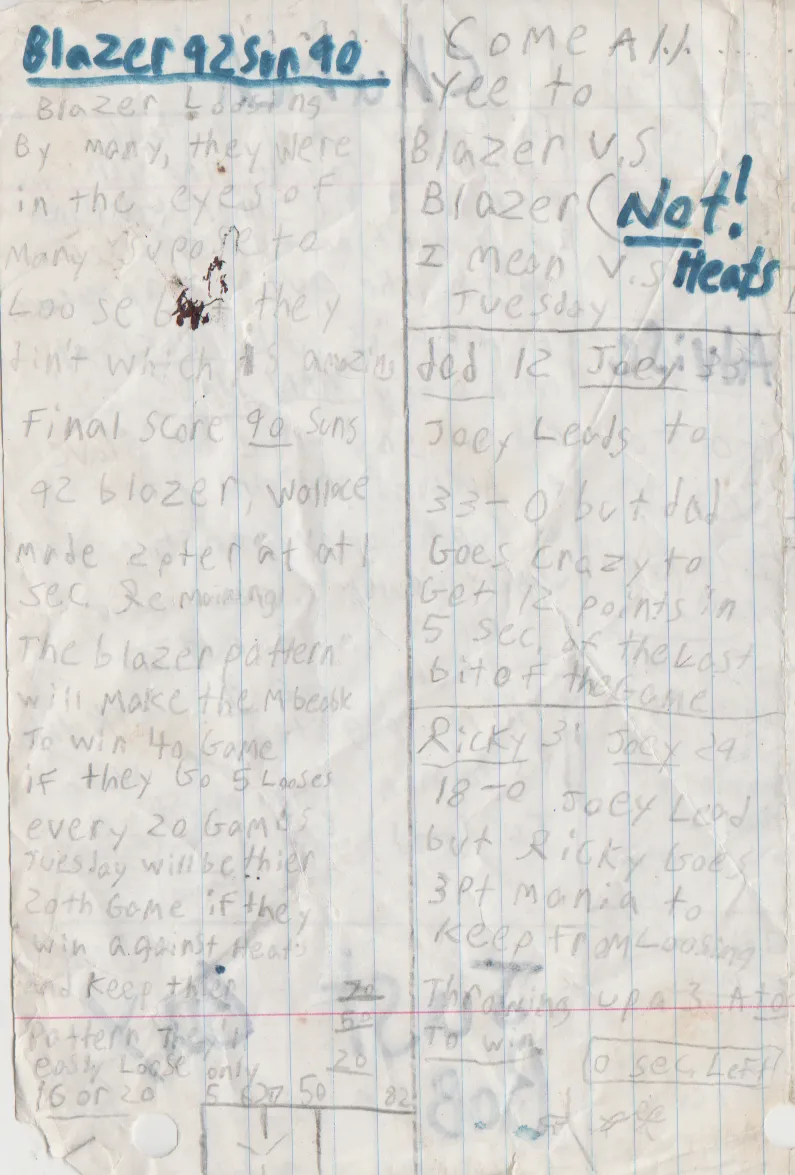 Blazer 92 Sun 90
Blazer Loosing
By many, they were
in the eyes of
many supose to
Loose but they
din't which is amazing
Final score 90 Suns
92 blazer, Wallace
made 2 pter at at 1
sec Remaining
The blazer pattern
will make them beable
To win 40 Game
if they Go 5 Looses
every 20 Games
Tuesday will be thier
20th Game if they
win against Heats
and keep thier
Pattern They'll
easly Loose only
16 or 20
70
50
20
5 50 82
Come All.....
Yee to
Blazer V.S
Blazer (Not!
I mean V.S Heats
Tuesday
dad 12 Joey 33
Joey Leads to
33-0 but dad
Goes Crazy to
Get 12 points in
5 sec. of the Last
bit of the Game
Ricky 31 Joey 29
18-0 Joey Lead
but Ricky Goes
3pt mania to
Keep From Loosing
Throwing up a 3 AT 0
To win
0 sec Left